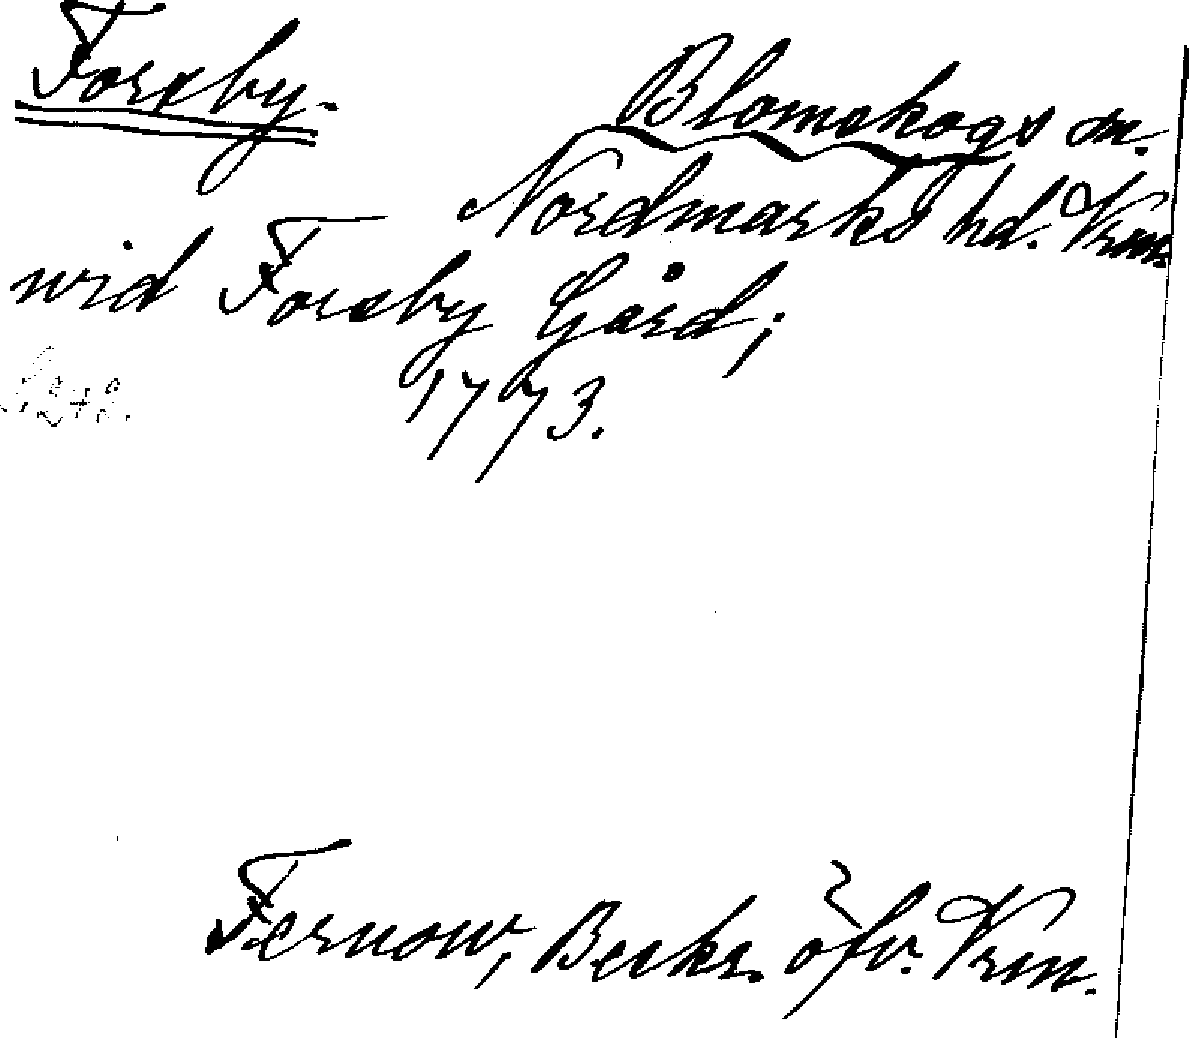 Forsby.
Blomskogs sn.
Nordmarks hd. Vrm.
wid Forsby Gård;
1773.
Fernow, Beskr. öfv. Vrm.